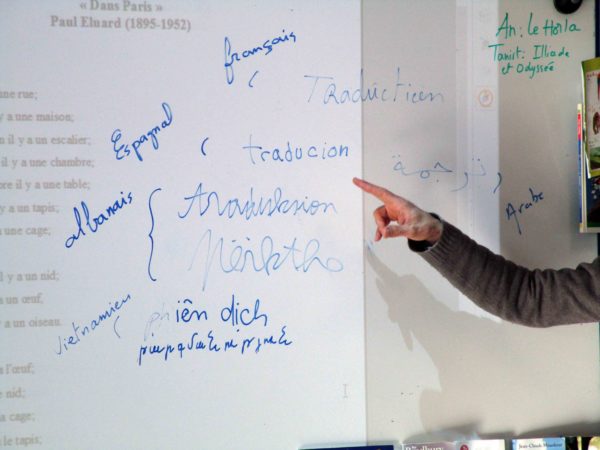 « Dans Paris »
Paul Eluard (1895-1952)
une rue;
y a une maison;
il y a un escalier;
il y a une chambre;
il y a une table;
y a un tapis;
a une cage;
il y a un nid;
a un œuf,
y a un oiseau.
l'œuf;
nid;
cage;
le tapis;
français
Traduction
Espagnol
traducion
ترجمة
Arabe
albanais
traduksion
Përktho
vietnamien
phiên dịch
An: Le Horla
Tanit: Illiade
et Odyssée